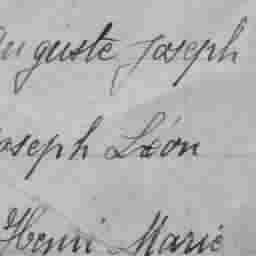 Auguste, Joseph
Joseph Léon
Henri Marie